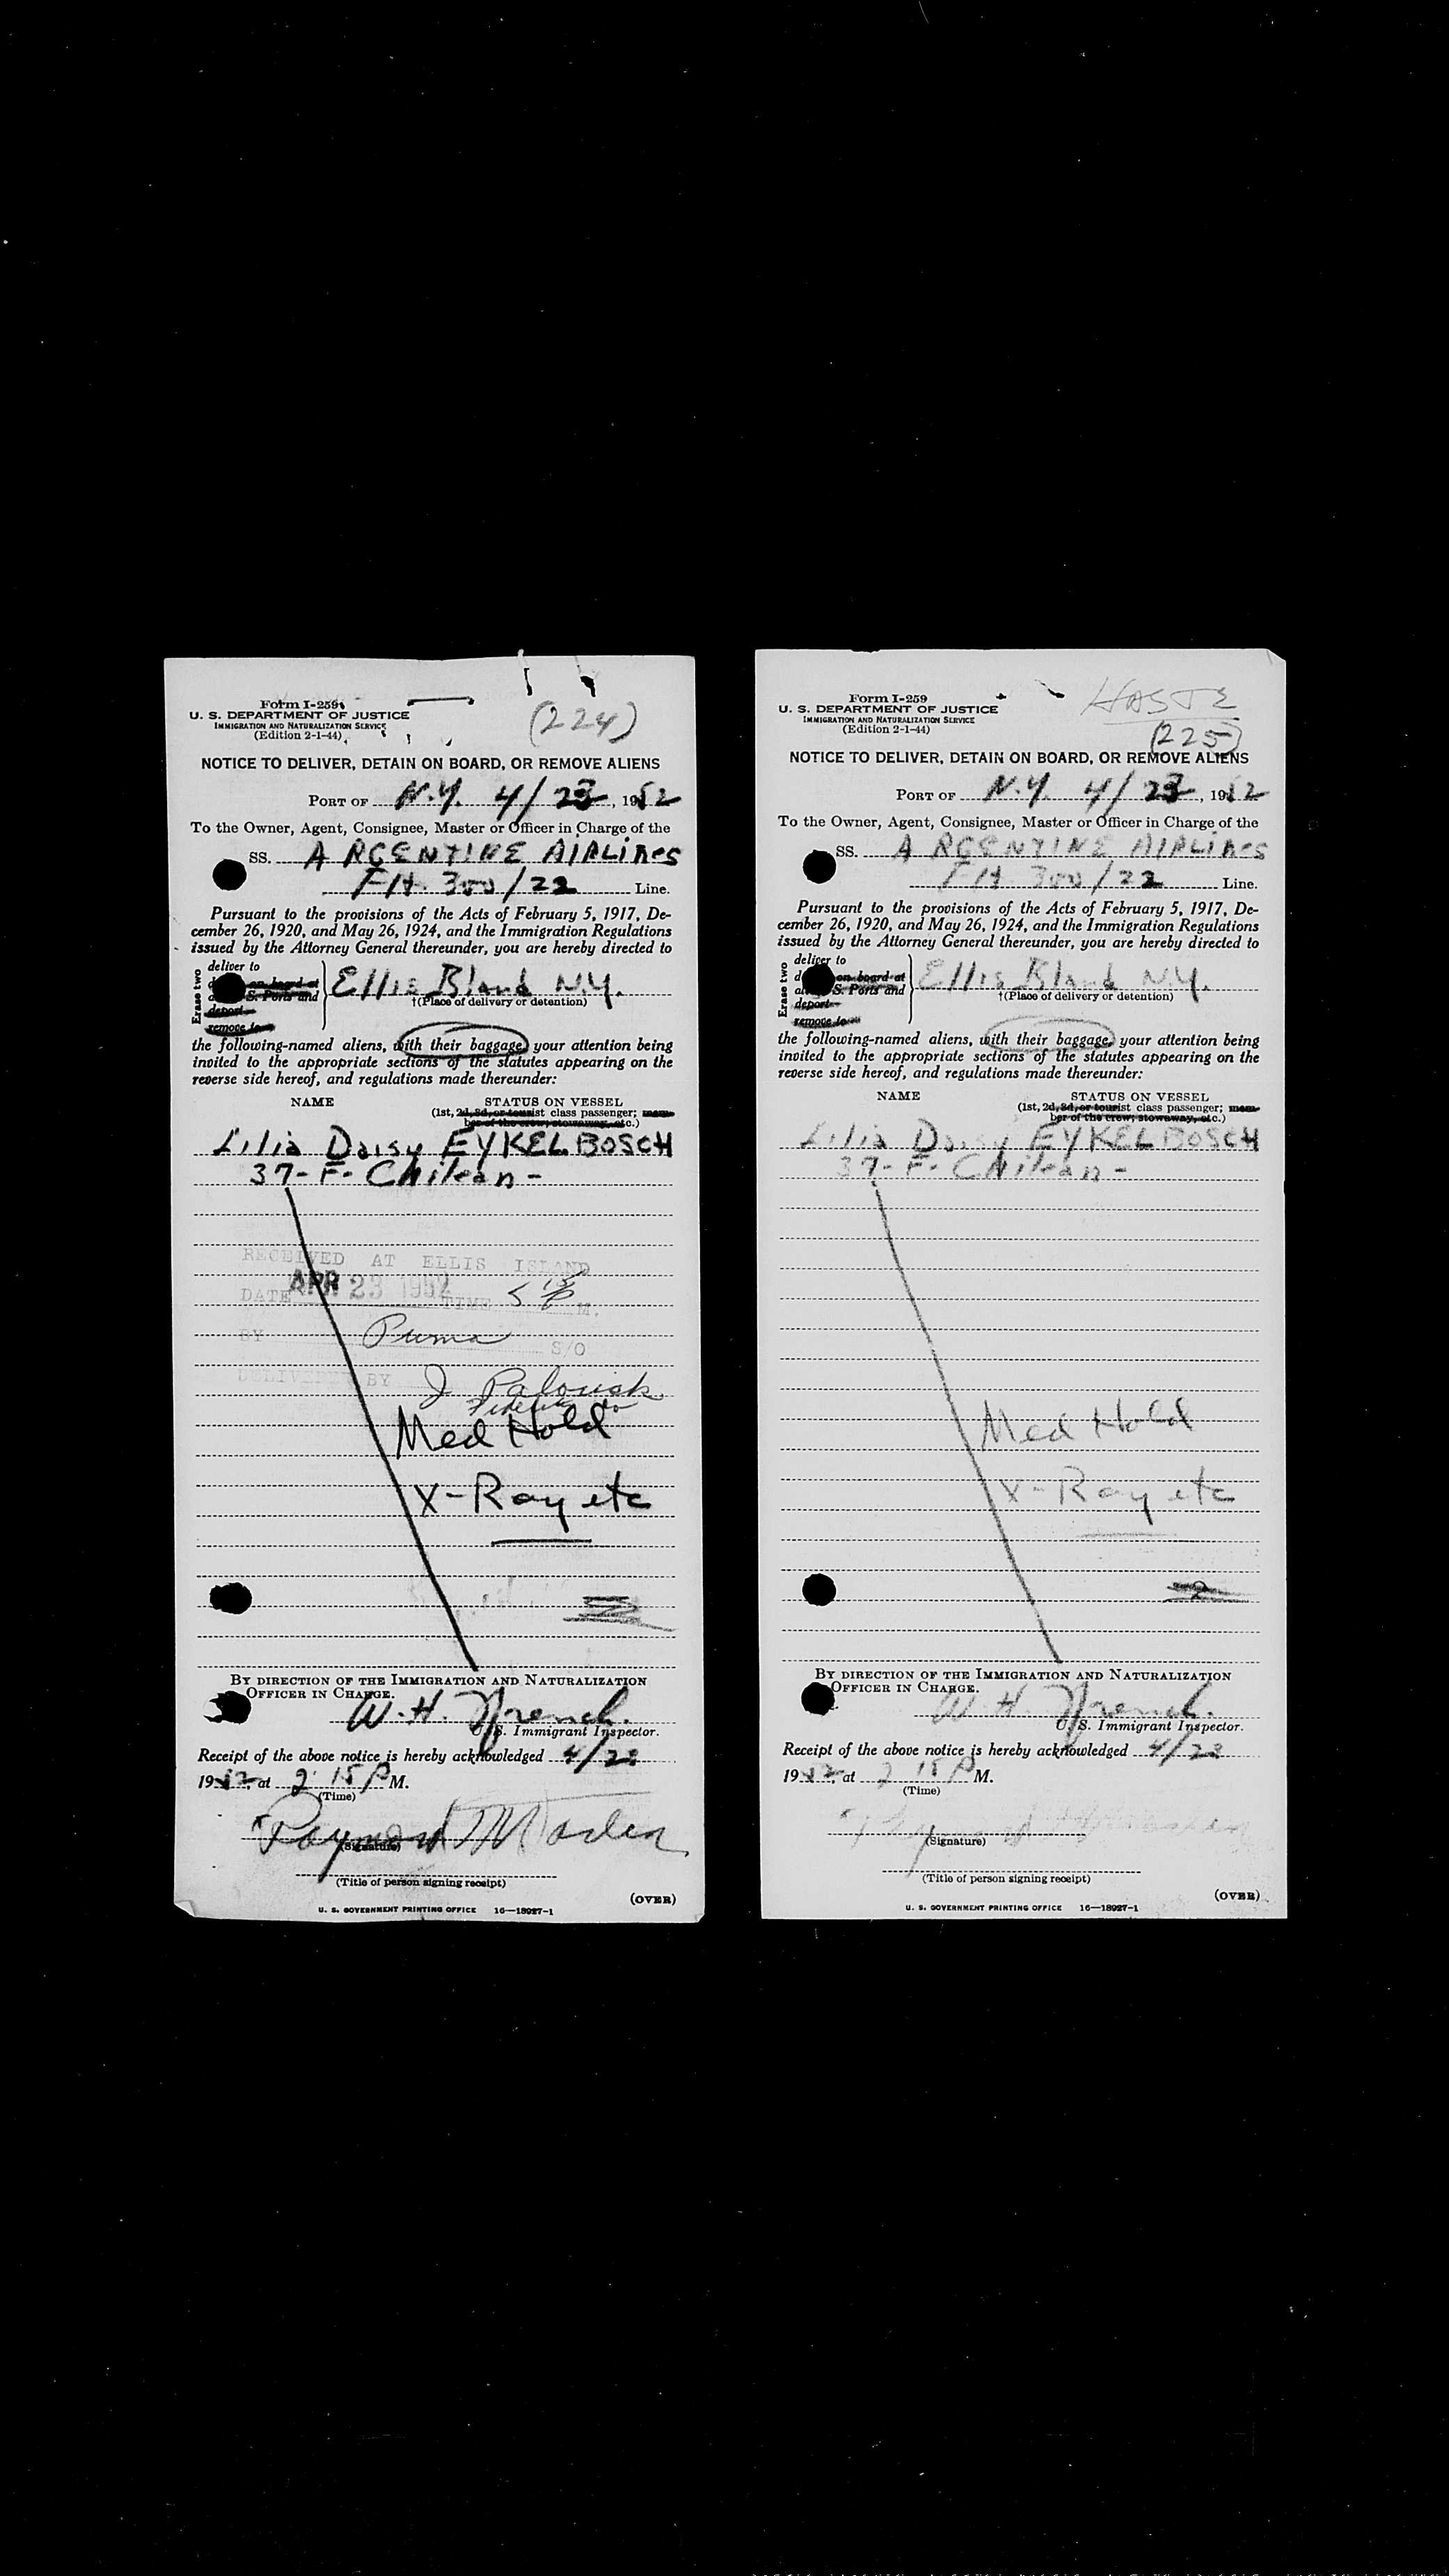 Form I-259
U. S. DEPARTMENT OF JUSTICE
IMMIGRATION AND NATURALIZATION SERVICE
(Edition 2-1-44)
(224)
NOTICE TO DELIVER, DETAIN ON BOARD, OR REMOVE ALIENS
PORT OF N.Y. 4/23, 1952
To the Owner, Agent, Consignee, Master or Officer in Charge of the
SS. ARGENTINE AIRLINES
Flt. 300/22 Line.
Pursuant to the provisions of the Acts of February 5, 1917, De-
cember 26, 1920, and May 26, 1924, and the Immigration Regulations
issued by the Attorney General thereunder, you are hereby directed to
Erase two
deliver to
on board at
S. Ports and
deport
remove to
Ellis Island N.Y.
†(Place of delivery or detention)
the following-named aliens, with their baggage, your attention being
invited to the appropriate sections of the statutes appearing on the
reverse side hereof, and regulations made thereunder:
NAME STATUS ON VESSEL
(1st, 2d, 3d, or tourist class passenger; mem-
ber of the crew; stowaway, etc.)
Lilia Daisy EYKELBOSCH
37-F-Chilean-
RECEIVED AT ELLIS ISLAND
DATE APR 23 1952 TIME 5 15 P M.
BY Puma S/O
DELIVERED BY J
Med Hold
X-Ray etc
BY DIRECTION OF THE IMMIGRATION AND NATURALIZATION
OFFICER IN CHARGE.
W. H.
U. S. Immigrant Inspector.
Receipt of the above notice is hereby acknowledged 4/23
1952, at 2 15 P M.
(Time)
Raymond
(Signature)
(Title of person signing receipt)
(OVER)
U. S. GOVERNMENT PRINTING OFFICE 16—18927-1
Form I-259
U. S. DEPARTMENT OF JUSTICE
IMMIGRATION AND NATURALIZATION SERVICE
(Edition 2-1-44)
HASTE
(225)
NOTICE TO DELIVER, DETAIN ON BOARD, OR REMOVE ALIENS
PORT OF N.Y. 4/23, 1952
To the Owner, Agent, Consignee, Master or Officer in Charge of the
SS. ARGENTINE AIRLINES
Flt. 300/22 Line.
Pursuant to the provisions of the Acts of February 5, 1917, De-
cember 26, 1920, and May 26, 1924, and the Immigration Regulations
issued by the Attorney General thereunder, you are hereby directed to
Erase two
deliver to
on board at
S. Ports and
deport
remove to
Ellis Island N.Y.
†(Place of delivery or detention)
the following-named aliens, with their baggage, your attention being
invited to the appropriate sections of the statutes appearing on the
reverse side hereof, and regulations made thereunder:
NAME STATUS ON VESSEL
(1st, 2d, 3d, or tourist class passenger; mem-
ber of the crew; stowaway, etc.)
Lilia Daisy EYKELBOSCH
37-F-Chilean-
Med Hold
X-Ray etc
BY DIRECTION OF THE IMMIGRATION AND NATURALIZATION
OFFICER IN CHARGE.
W. H.
U. S. Immigrant Inspector.
Receipt of the above notice is hereby acknowledged 4/23
1952, at 2 15 P M.
(Time)
(Signature)
(Title of person signing receipt)
(OVER)
U. S. GOVERNMENT PRINTING OFFICE 16—18927-1